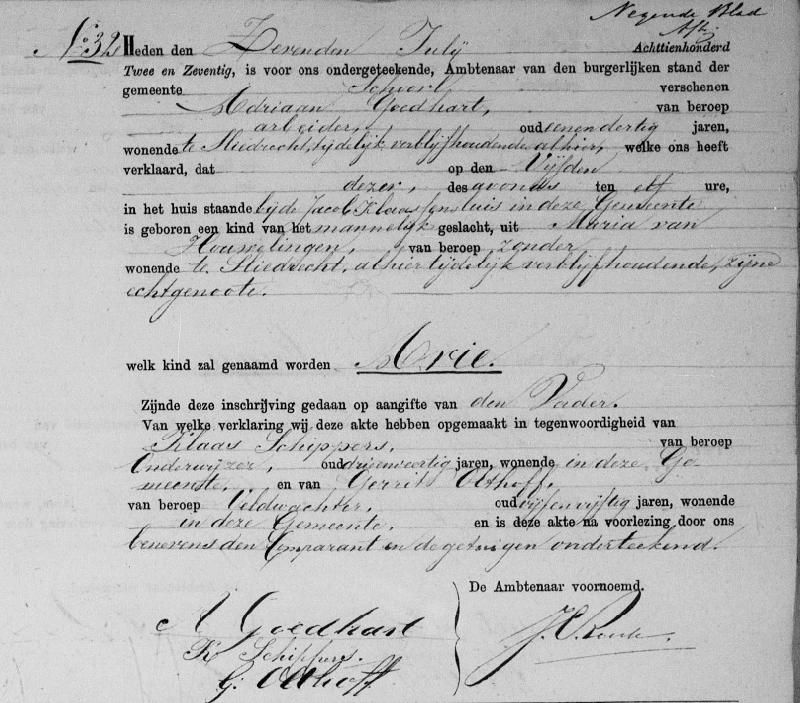 Negende Blad
No. 32 Heden den Zevenden Julij Achttienhonderd
Twee en Zeventig, is voor ons ondergeteekende, Ambtenaar van den burgerlijken stand der
gemeente Schoorl verschenen
Adriaan Goedhart, van beroep
arbeider, oud eenendertig jaren,
wonende te Sliedrecht, tijdelijk verblijfhoudende alhier, welke ons heeft
verklaard, dat op den Vijfden
dezer, des avonds ten elf ure,
in het huis staande bij de Jacob Klaassensluis in deze Gemeente
is geboren een kind van het mannelijk geslacht, uit Maria van
Houwelingen, van beroep zonder
wonende te Sliedrecht, alhier tijdelijk verblijfhoudende, zijne
echtgenoote.
welk kind zal genaamd worden Arie.
Zijnde deze inschrijving gedaan op aangifte van den Vader.
Van welke verklaring wij deze akte hebben opgemaakt in tegenwoordigheid van
Klaas Schippers, van beroep
Onderwijzer, oud drieenveertig jaren, wonende in deze Ge
meente, en van Gerrit Olthoff,
van beroep Veldwachter, oud vijfenvijftig jaren, wonende
in deze Gemeente. en is deze akte na voorlezing door ons
benevens den Comparant en de getuigen onderteekend.
De Ambtenaar voornoemd.
A Goedhart
K Schippers.
G. Olthoff